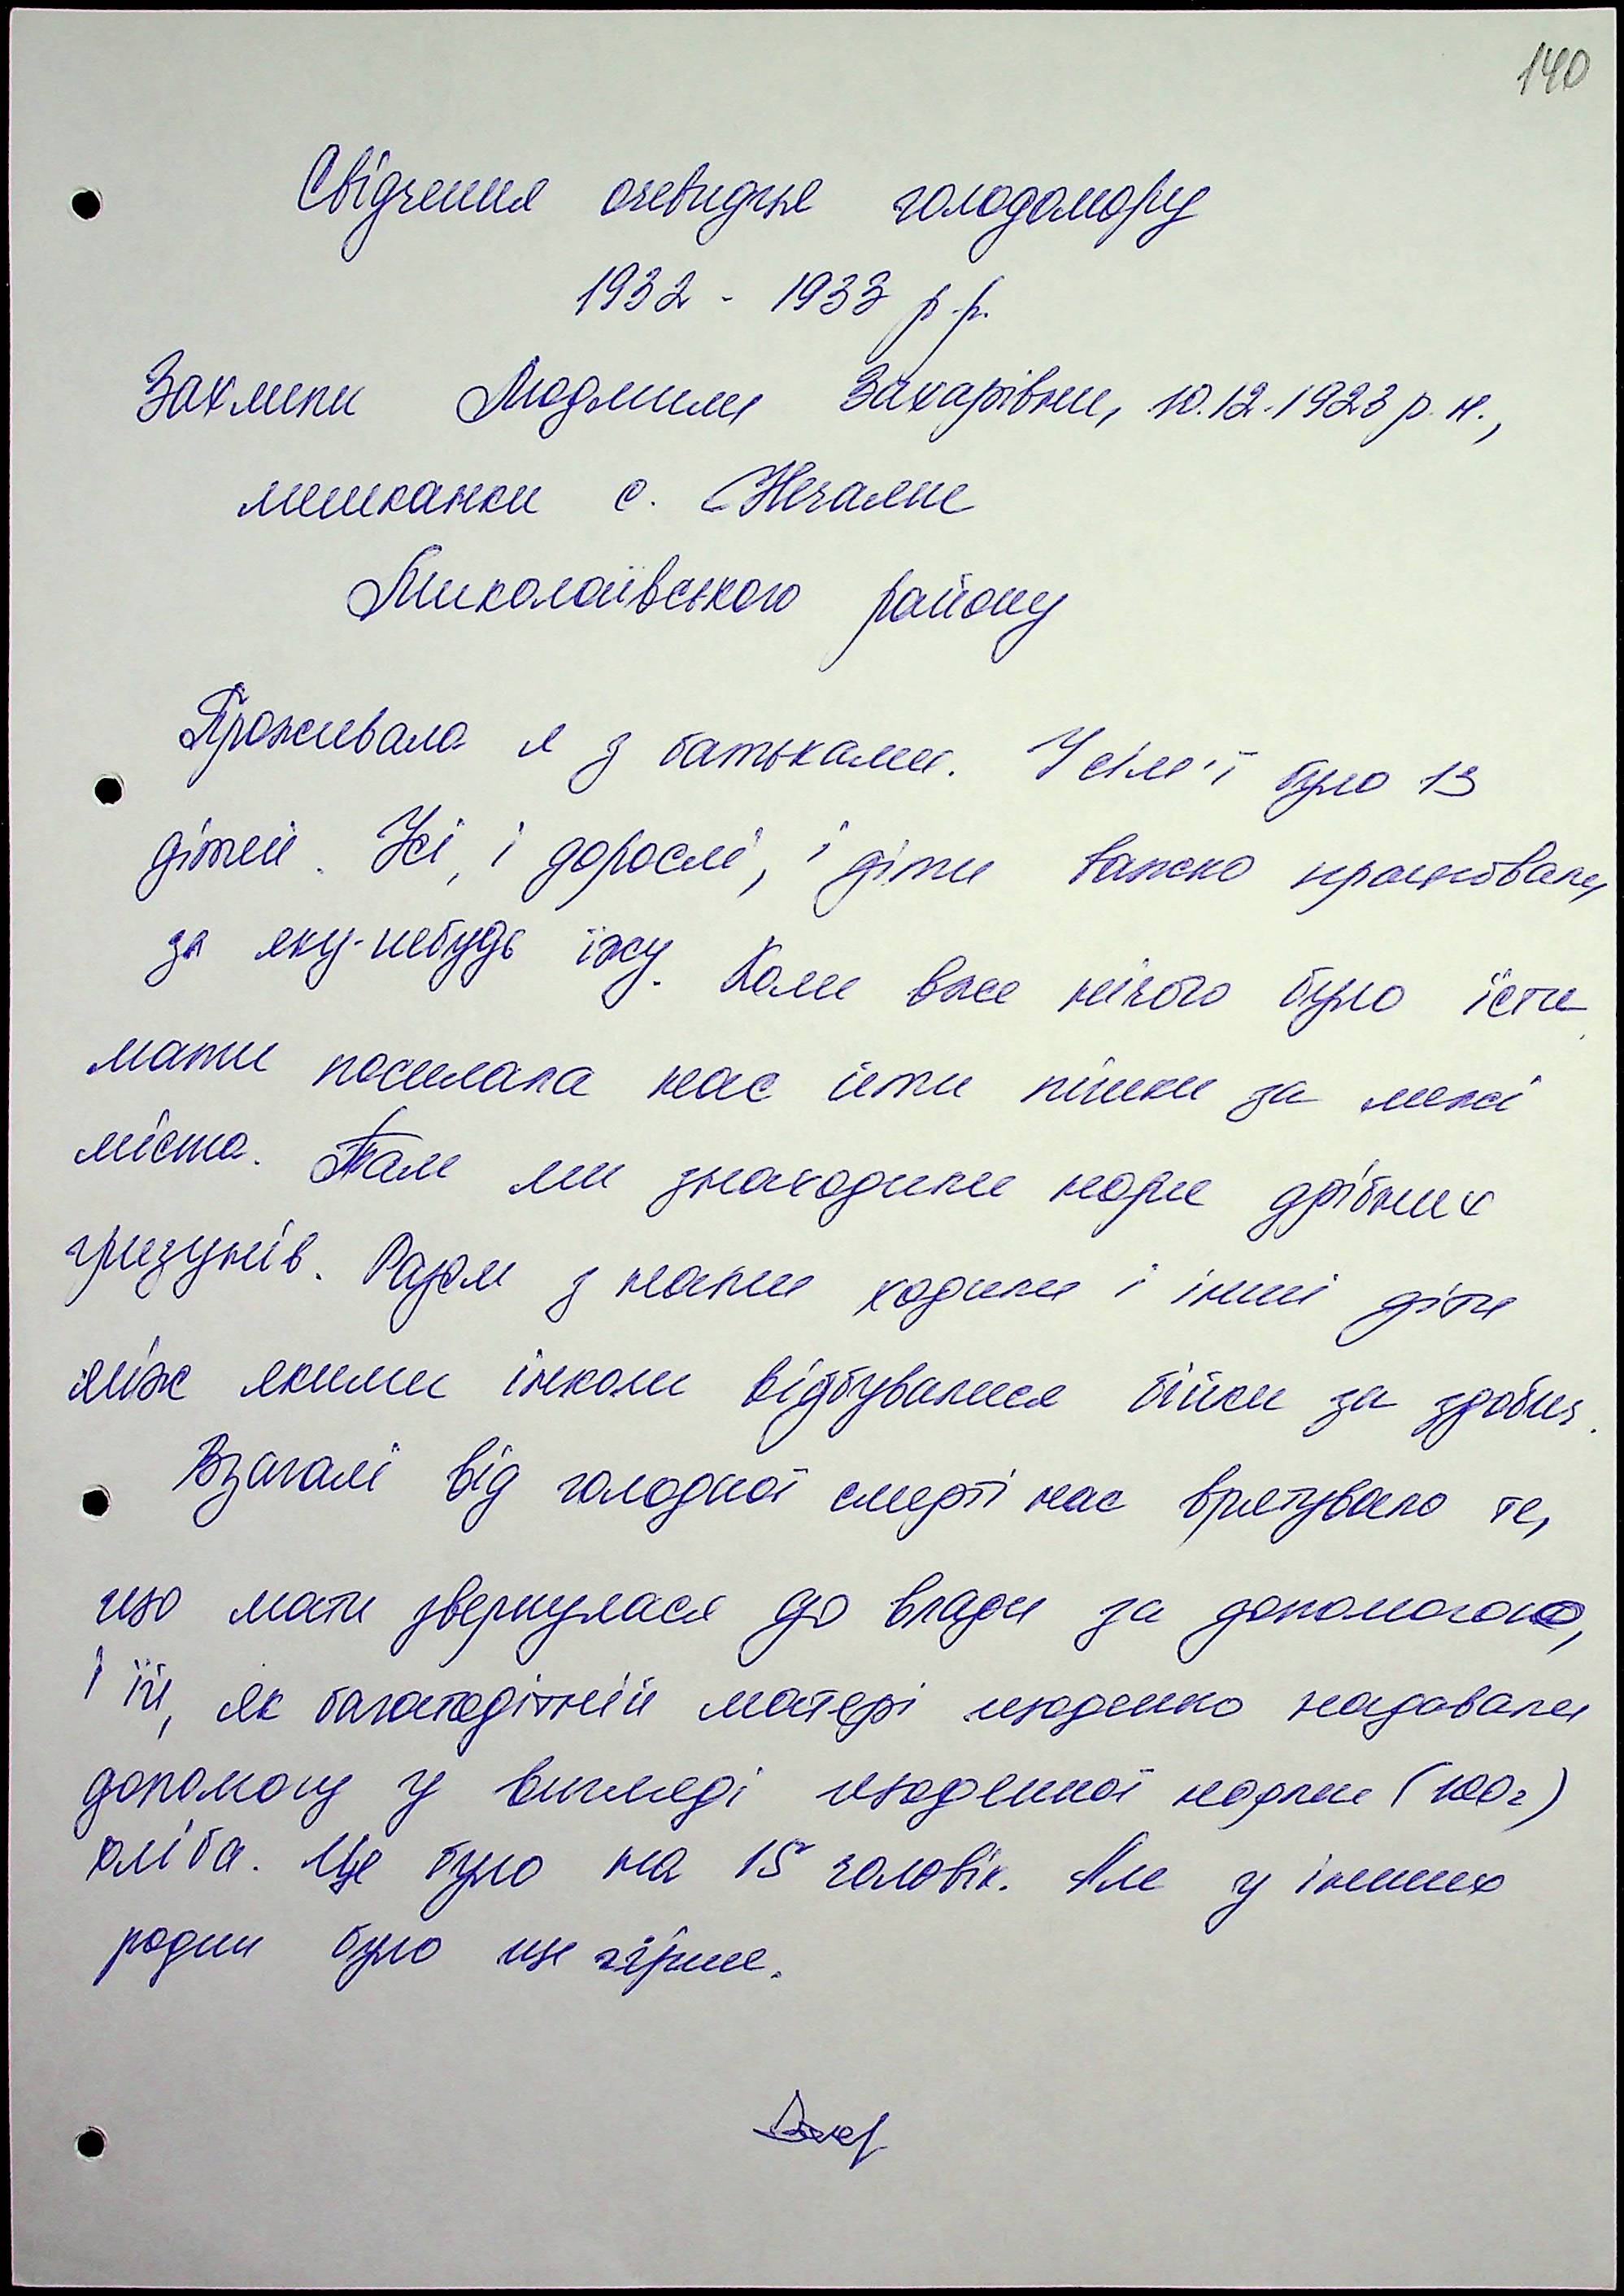 140
Свідчення очевидця голодомору
1932 - 1933 р.р.
Людмили Захарівни, 10.12.1923 р.н.,
мешканки с. Нечаяне
Миколаївського району
Проживала я з батьками. У сім'ї було 13
дітей. Усі, і дорослі, і діти важко працювали
за яку-небудь їжу. Коли вже нічого було їсти
мати посилала нас йти пішки за межі
міста. Там ми знаходили нори дрібних
гризунів. Разом з нами ходили і інші діти
між якими інколи відбувалися бійки за здобич.
Взагалі від голодної смерті нас врятувало те,
що мати звернулася до влади за допомогою,
і їй, як багатодітній матері щоденно надавали
допомогу у вигляді щоденної норми (100г)
хліба. Це було на 15 чоловік. Але у інших
родин було ще гірше.